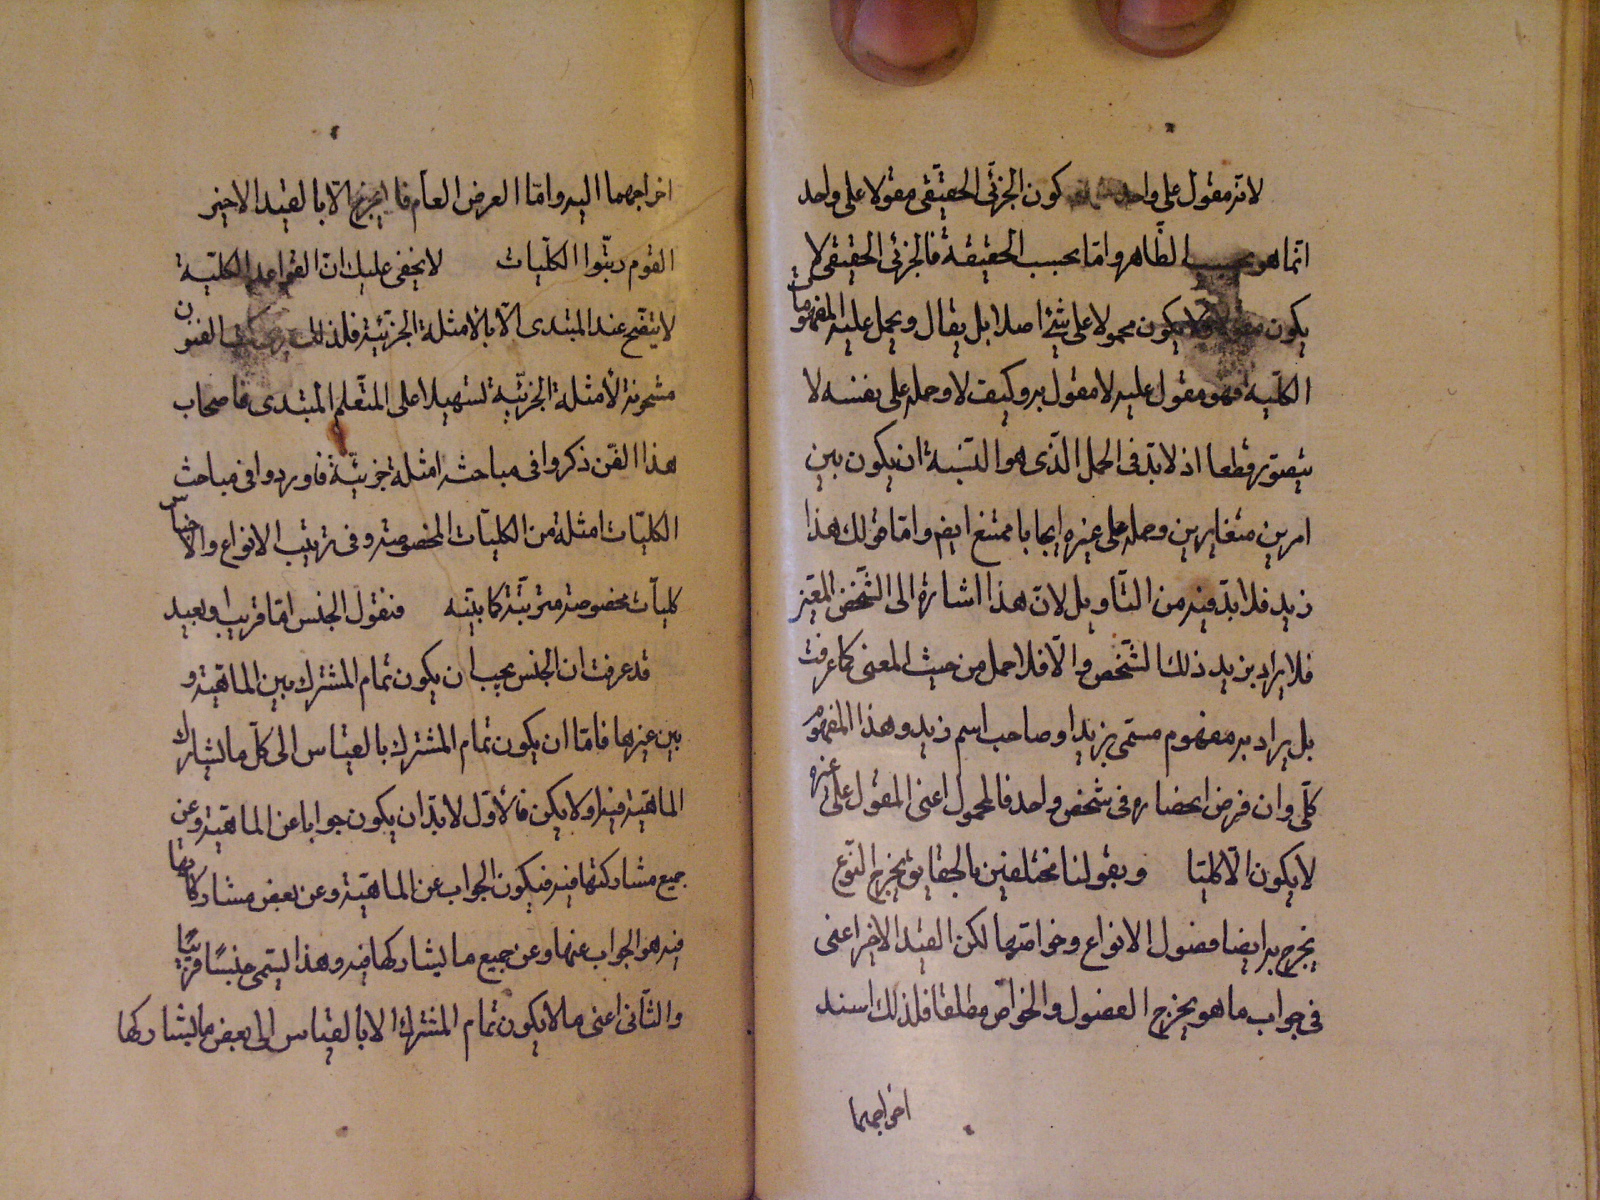 لانه مقول على واحد كون الجزئى الحقيقى مقولا على واحد
انما هو بحسب الظاهر واما بحسب الحقيقة فالجزئى الحقيقى لا
يكون مقولا ولا يكون محمولا على شئ اصلا بل يقال ويحمل عليه المفهومات
الكلية فهو مقول عليه لا مقول به وكيف لا وحمله على نفسه لا
يتصور قطعا اذ لابد فى الحمل الذى هو النسبة ان يكون بين
امرين متغايرين وحمله على غيره ايجابا ممتنع ايضم واما قولك هذا
زيد فلابد فيه من التاويل لان هذا اشارة الى الشخص المعين
فلا يراد بزيد ذلك الشخص والا فلا حمل من حيث المعنى كما عرفت
بل يراد به مفهوم مسمى بزيد او صاحب اسم زيد وهذا المفهوم
كلى وان فرض انحصاره فى شخص واحد فالمحمول اعنى المقول على غيره
لا يكون الا كليا وبقولنا مختلفين بالحقايق يخرج النوع
يخرج به ايضا فصول الانواع وخواصها لكن القيد الاخير اعنى
فى جواب ما هو يخرج الفصول والخواص مطلقا فلذلك اسند
اخراجهما
اخراجهما اليه واما العرض العام فلا يخرج الا بالقيد الاخير
القوم رتبوا الكليات لا يخفى عليك ان القواعد الكلية
لا يتضح عند المبتدى الا بالامثلة الجزئية فلذلك الفنون
مشحونة لأمثلة الجزئية تسهيلا على المتعلم المبتدى فاصحاب
هذا الفن ذكروا فى مباحثه امثلة جزئية فاوردوا فى مباحث
الكليات امثلة من الكليات المخصوصة وفى ترتيب الانواع والاجناس
كليات مخصوصة مترتبة كما بينه فنقول الجنس اما قريب او بعيد
قد عرفت ان الجنس يجب ان يكون تمام المشترك بين الماهية و
بين غيرها فاما ان يكون تمام المشترك بالقياس الى كل ما يشارك
الماهية فيه او لا يكن فالأول لابد ان يكون جوابا عن الماهية وعن
جميع مشاركتها فيه فيكون الجواب عن الماهية وعن بعض مشاركاتها
فيه هو الجواب عنها وعن جميع ما يشاركها فيه وهذا يسمى جنسا قريبا
والثانى اعنى ما لا يكون تمام المشترك الا بالقياس الى بعض ما يشاركها